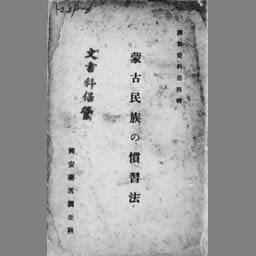 調査資料第四輯
蒙古民族の慣習法
文書科保管
興安總署調査科